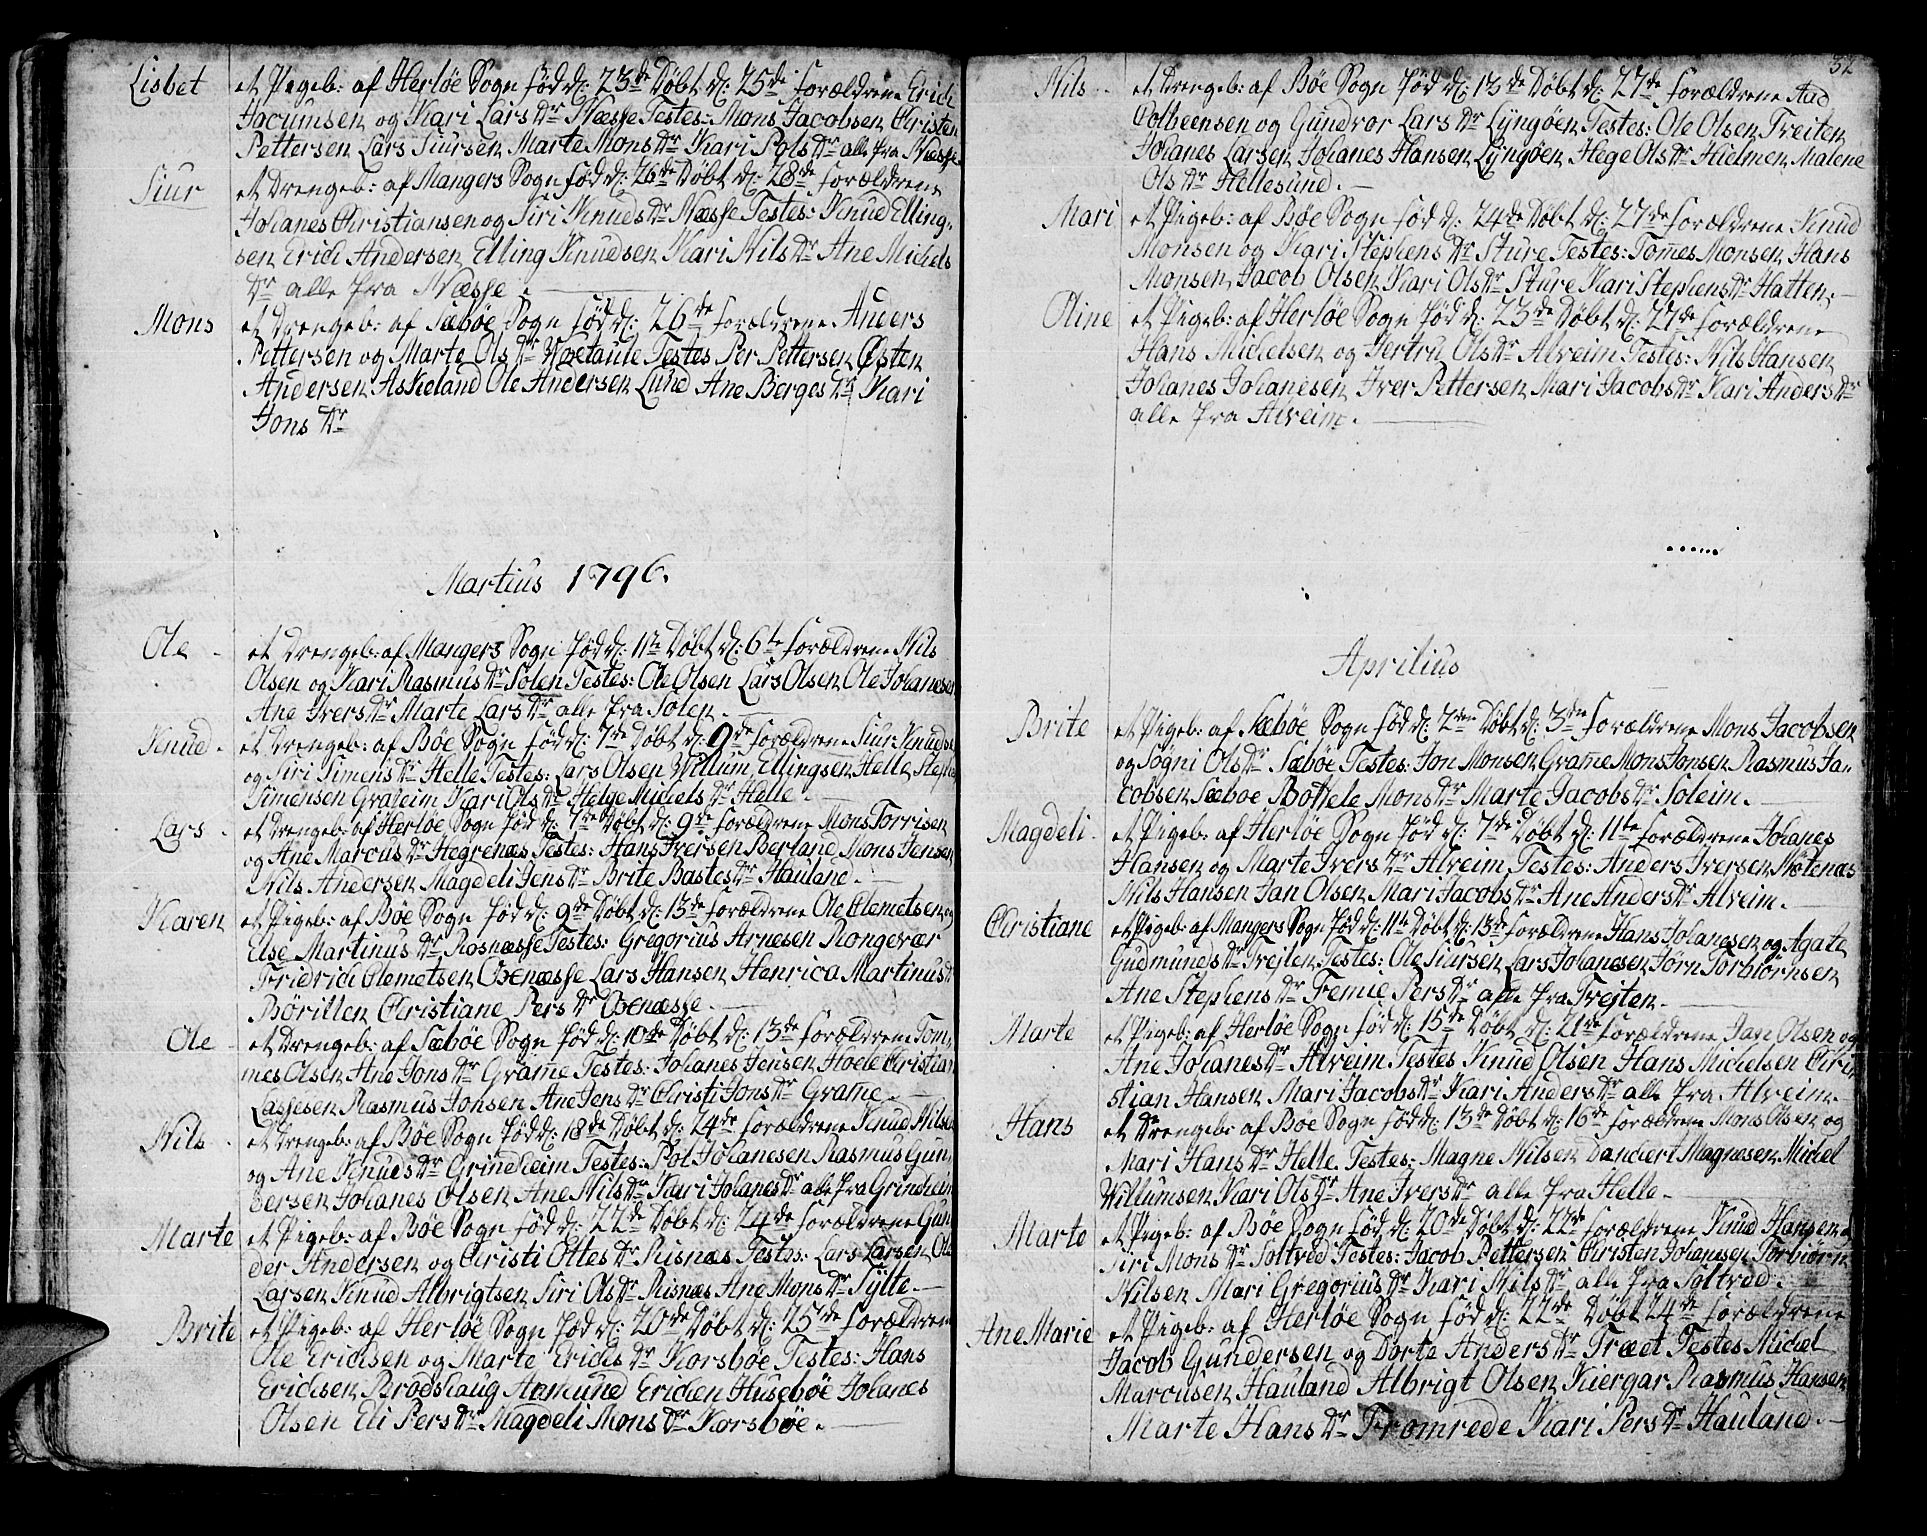 Lisbet et Pigeb: af Herløe Sogn født d: 23de Døbt d: 25de forældrene Erich
Jacumsen og Kari Lars Dr Næsse Testes: Mons Jacobsen Christen
Pettersen Lars Siursen Marte Mons Dr Kari Pols Dr alle fra Næsse
Siur et Drengeb: af Mangers Sogn født d: 26de Døbt d: 28de forældrene
Johanes Christiansen og Siri Knuds Dr Næsse Testes: Knud Elling-
sen Erich Andersen Elling Knudsen Kari Nils Dr Ane Michels
Dr alle fra Næsse.
Mons et Drengeb: af Sæbøe Sogn født d: 26de forældrene Anders
Pettersen og Marte Ols Dr Testes Per Pettersen Østen
Andersen Askeland Ole Andersen Lund Ane Berges Dr Kari
Jons Dr
Martius 1796.
Ole et Drengeb: af Mangers Sogn født d: 1ste Døbt d: 6te forældrene Nils
Olsen og Kari Rasmus Dr Solen Testes: Ole Olsen Lars Olsen Ole Johanesen
Ane Ivers Dr Marte Lars Dr alle fra Solen.
Knud et Drengeb: af Bøe Sogn født d: 7de Døbt d: 9de forældrene Siur Knudsen
og Siri Simens Dr Helle Testes: Lars Olsen Willum Ellingsen Helle Stephen
Simensen Kari Ols Dr Helge Michels Dr Helle.
Lars et Drengeb: af Herløe Sogn født d: 7de Døbt d: 9de forældrene Mons Torrisen
og Ane Marcus Dr Hegrenæs Testes: Hans Iversen Berland Mons Jensen
Nils Andersen Magdeli Jens Dr Brite Bastes Dr Hauland.
Karen et Pigeb: af Bøe Sogn født d: 9de Døbt d: 13de forældrene Ole Clemetsen og
Else Martinus Dr Rosnæsse Testes: Gregorius Arnesen Rongevær
Fridrich Clemetsen Oxnæsse Lars Hansen Henrica Martinus Dr
Børillen Christiane Pers Dr Oxnæsse.
Ole et Drengeb: af Sæbøe Sogn født d: 10de Døbt d: 13de forældrene Tom-
mes Olsen Ane Jons Dr Grame Testes: Johanes Jensen Hoele Christian
Lassesen Rasmus Jonsen Ane Jens Dr Christi Jons Dr Grame.
Nils et Drengeb: af Bøe Sogn født d: 18de Døbt d: 24de forældrene Knud Nilsen
og Ane Knuds Dr Grindheim Testes: Pol Johanesen Rasmus Gun-
dersen Johanes Olsen Ane Nils Dr Kari Johanes Dr alle fra Grindheim
Marte et Pigeb: af Bøe Sogn født d: 22de Døbt d: 24de forældrene Gun-
der Andersen og Christi Ottes Dr Risnæs Testes: Lars Larsen Ole
Larsen Knud Albrigtsen Siri Ols Dr Risnæs Ane Mons Dr Sylte.
Brite et Pigeb: af Herløe Sogn født d: 20de Døbt d: 25de forældrene
Ole Erichsen og Marte Erichs Dr Korsbøe Testes: Hans
Erichsen Brodshaug Aamund Erichen Husebøe Johanes
Olsen Eli Pers Dr Magdeli Mons Dr Korsbøe.
32
Nils et Drengeb: af Bøe Sogn født d: 13de Døbt d: 27de forældrene Aad
Colbeensen og Gundvor Lars Dr Lyngøen Testes: Ole Olsen Treiten
Johanes Larsen Johanes Hansen Lyngøen Hege Ols Dr Hielmen Malene
Ols Dr Hellesund.
Mari et Pigeb: af Bøe Sogn født d: 24de Døbt d: 27de forældrene Knud
Monsen og Kari Stephens Dr Sture Testes: Tomes Monsen Hans
Monsen Jacob Olsen Kari Ols Dr Sture Kari Stephens Dr Hatten.
Oline et Pigeb: af Herløe Sogn født d: 23de Døbt d: 27de forældrene
Hans Michelsen og Jertru Ols Dr Alveim Testes: Nils Hansen
Johanes Johanesen Iver Pettersen Mari Jacobs Dr Kari Anders Dr
alle fra Alveim.
Aprilius
Brite et Pigeb: af Sæbøe Sogn født d: 2den Døbt d: 3die forældrene Mons Jacobsen
og Søgni Ols Dr Sæbøe Testes: Jon Monsen Grame Mons Jonsen Rasmus Ja-
cobsen Sæbøe Bottele Mons Dr Marte Jacobs Dr Soleim.
Magdeli et Pigeb: af Herløe Sogn født d: 7de Døbt d: 11te forældrene Johanes
Hansen og Marte Ivers Dr Alveim Testes: Anders Iversen Møtenæs
Nils Hansen Jan Olsen Mari Jacobs Dr Ane Anders Dr Alveim.
Christiane et Pigeb: af Mangers Sogn født d: 11te Døbt d: 13de forældrene Hans Johanesen og Agate
Gudmunds Dr Trejten Testes: Ole Siursen Lars Johanesen Jørn Torbiørnsen
Ane Stephens Dr Femie Pers Dr alle fra Trejten.
Marte et Pigeb: af Herløe Sogn født d: 15de Døbt d: 21de forældrene Jan Olsen og
Ane Johanes Dr Alveim Testes Knud Olsen Hans Michelsen Chri-
stian Hansen Mari Jacobs Dr Kari Anders Dr alle fra Alveim.
Hans et Drengeb: af Bøe Sogn født d: 13de Døbt d: 16de forældrene Mons Olsen og
Mari Hans Dr Helle. Testes: Magne Nilsen Danckert Magnesen Michel
Willumsen Kari Ols Dr Ane Ivers Dr alle fra Helle.
Marte et Pigeb: af Bøe Sogn født d: 20de Døbt d: 22de forældrene Knud Hansen og
Siri Mons Dr Soltved Testes: Jacob Pettersen Christen Johanesen Torbiørn
Nilsen Mari Gregorius Dr Kari Nils Dr alle fra Soltved.
Ane Marie et Pigeb: af Herløe Sogn født d: 22de Døbt 24de forældrene
Jacob Gundersen og Dorte Anders Dr Træet Testes Michel
Marcusen Hauland Albrigt Olsen Kiergar Rasmus Hansen
Marte Hans Dr Fromrede Kari Pers Dr Hauland.